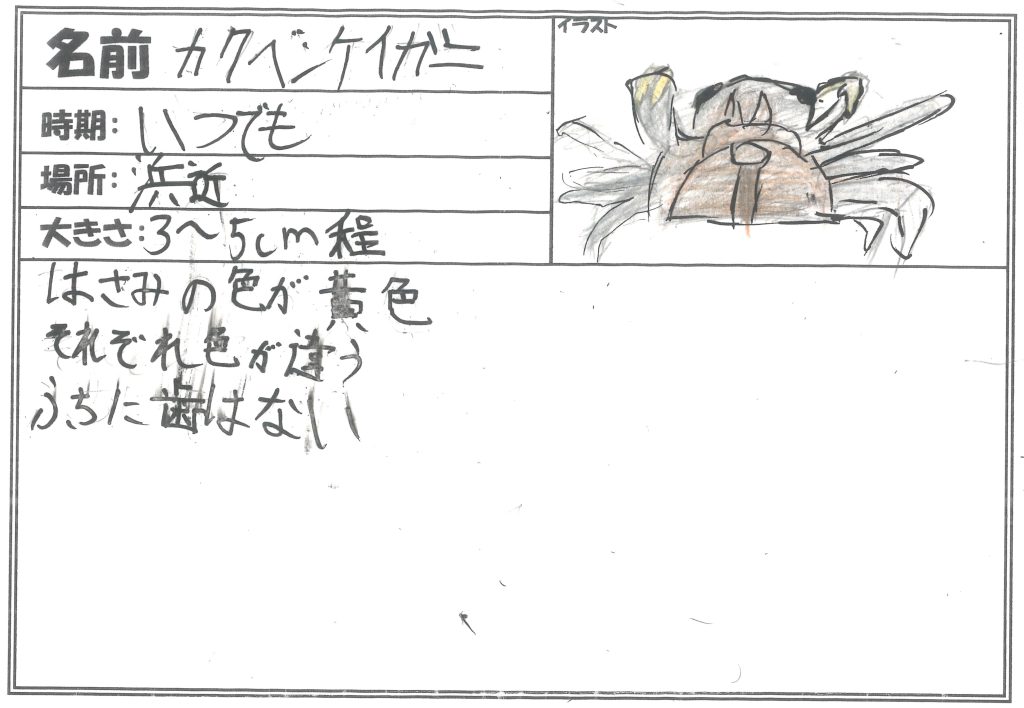 名前 カクベンケイガニ
イラスト
時期: いつでも
場所: 浜近
大きさ: 3〜5cm程
はさみの色が黄色
それぞれ色が違う
ふちに歯はない